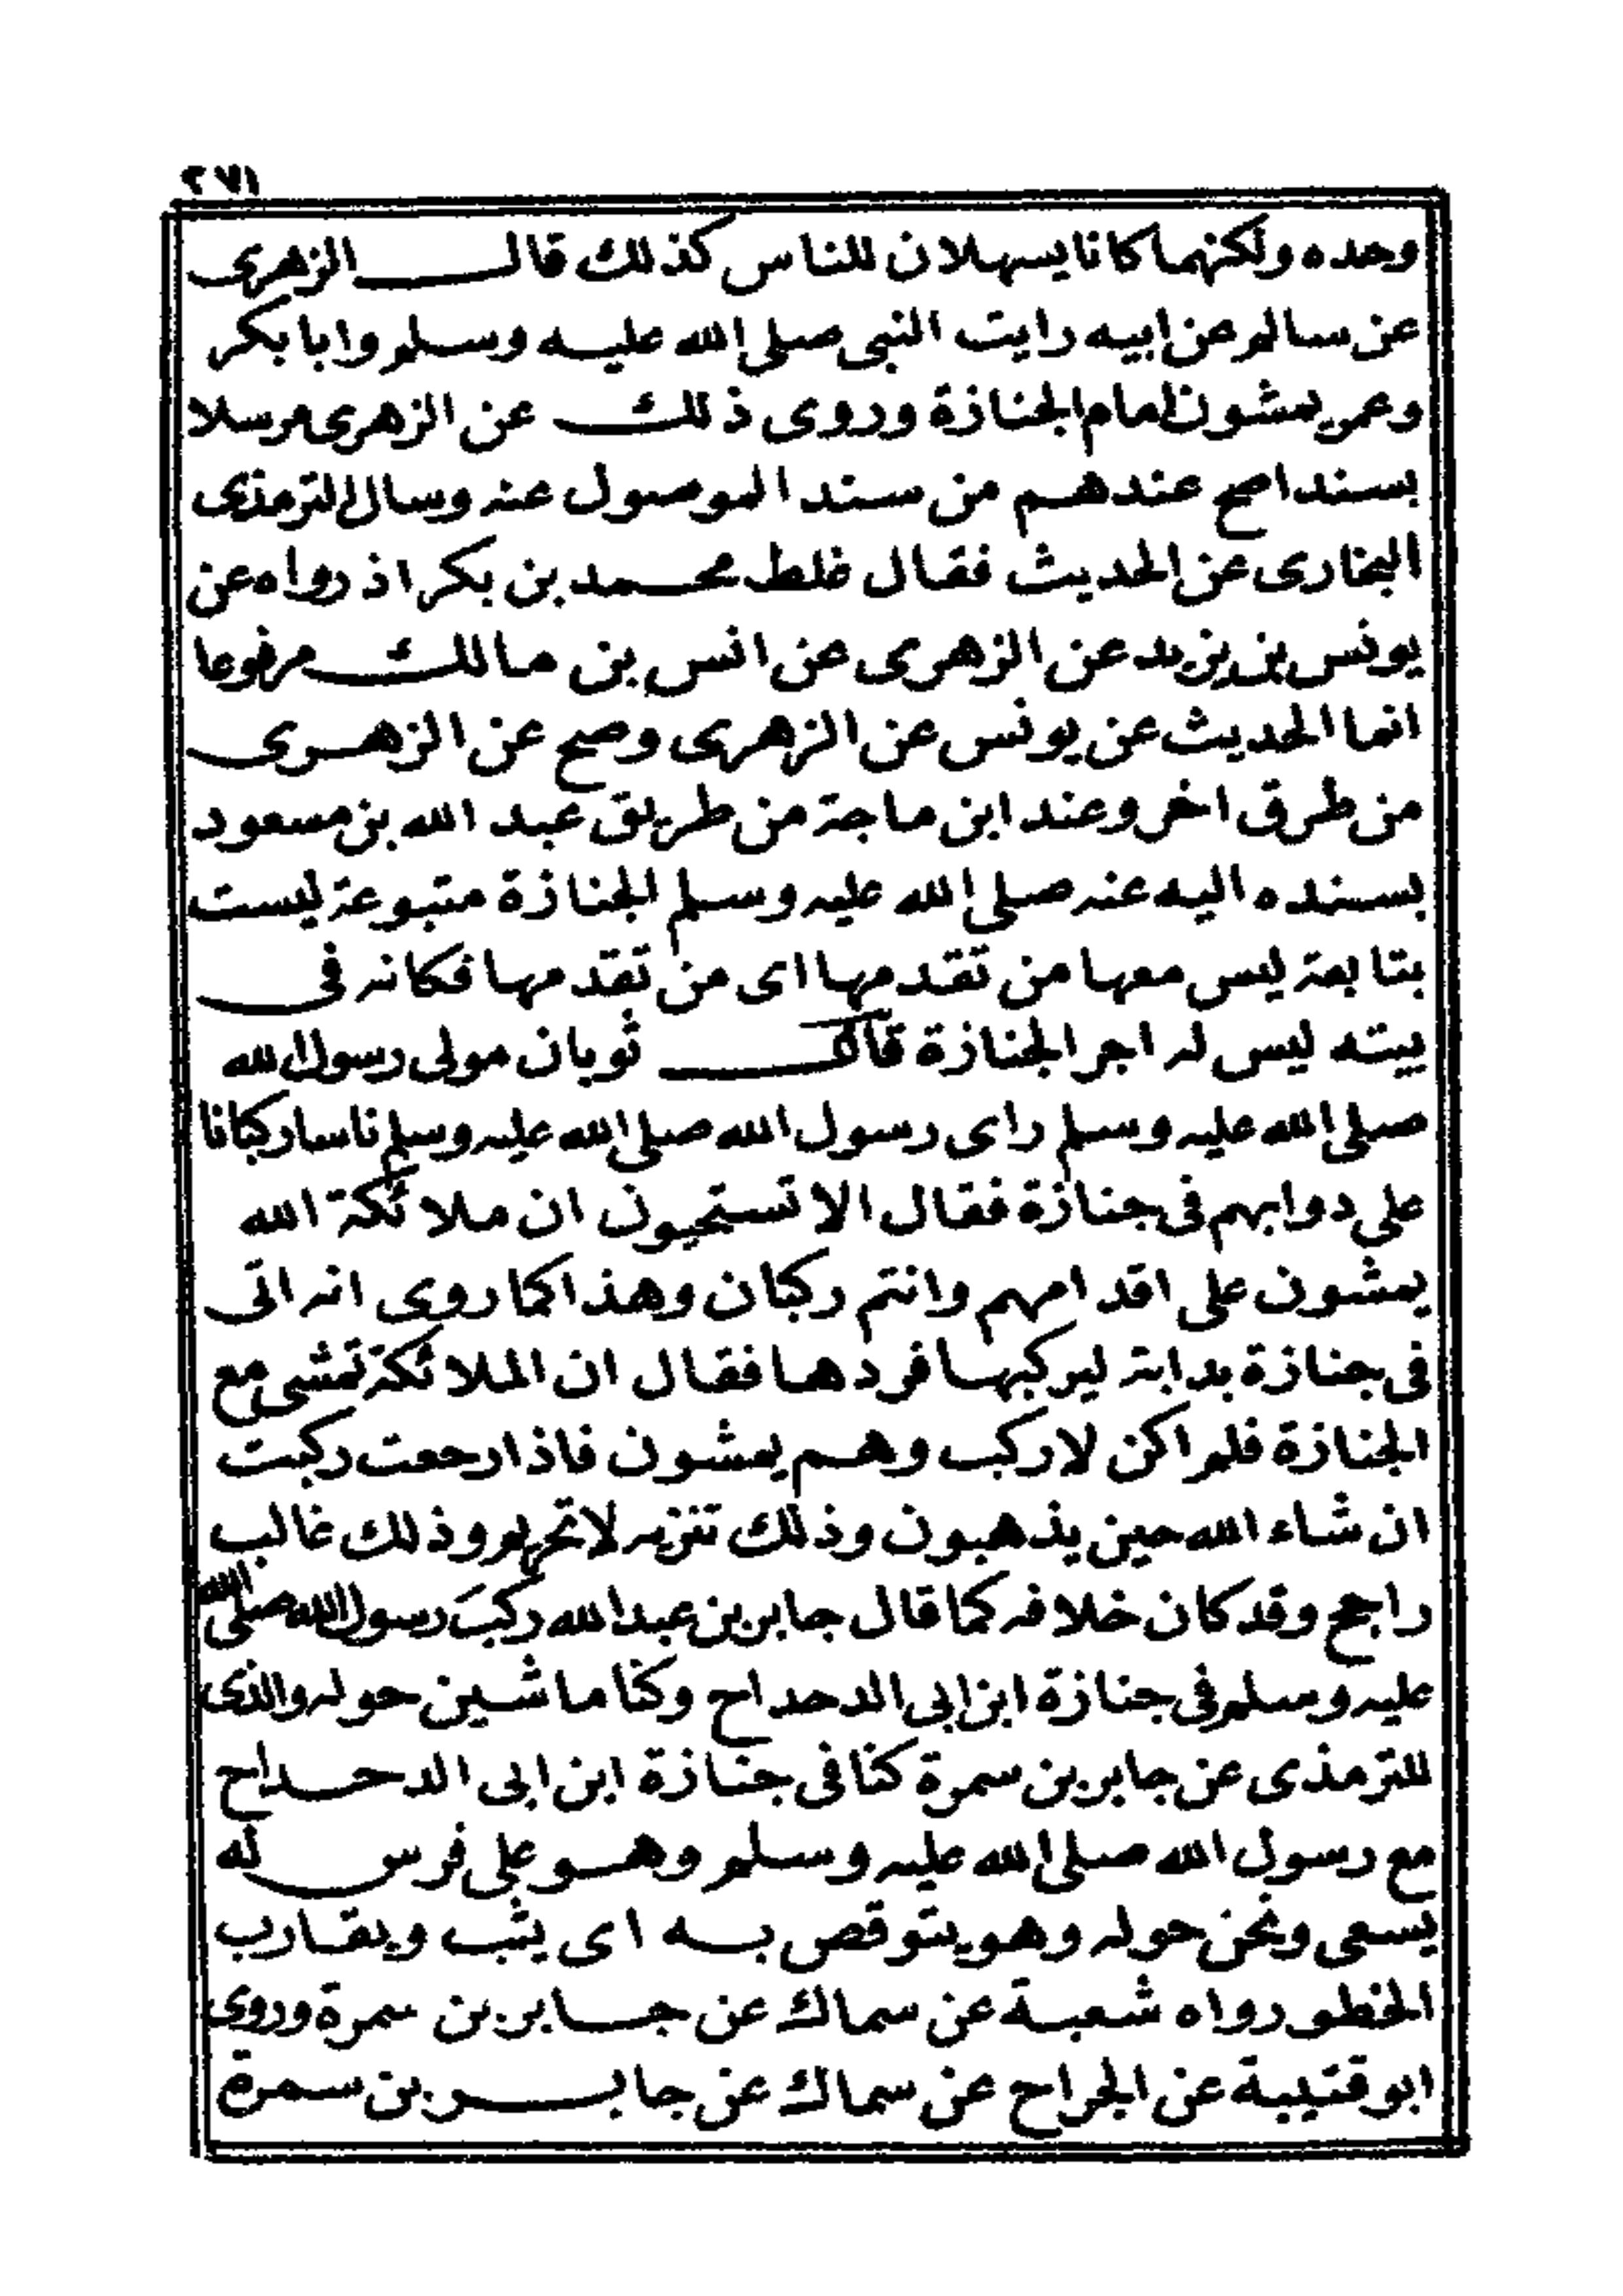 ٢٧١
وحده ولكنهما كانا يسهلان للناس كذلك قال الزهرى
عن سالم عن ابيه رايت النبى صلى الله عليه وسلم وابا بكر
وعمر يمشون امام الجنازة وروى ذلك عن الزهرى مرسلا
بسند اصح عندهم من سند الموصول عنه وسال الترمذى
البخارى عن الحديث فقال غلط محمد بن بكر اذ رواه عن
يونس بن يزيد عن الزهرى عن انس بن مالك مرفوعا
انما الحديث عن يونس عن الزهرى وصح عن الزهرى
من طرق اخر وعند ابن ماجة من طريق عبد الله بن مسعود
بسنده اليه عنه صلى الله عليه وسلم الجنازة متبوعة ليست
بتابعة ليس معها من تقدمها اى من تقدمها فكانه فى
بيته ليس له اجر الجنازة قال ثوبان مولى رسول الله
صلى الله عليه وسلم راى رسول الله صلى الله عليه وسلم ناسا ركبانا
على دوابهم فى جنازة فقال الا تستحيون ان ملائكة الله
يمشون على اقدامهم وانتم ركبان وهذا كما روى انه اتى
فى جنازة بدابة ليركبها فردها فقال ان الملائكة تمشى مع
الجنازة فلم اكن لاركب وهم يمشون فاذا رجعت ركبت
ان شاء الله حين يذهبون وذلك تنزيه لا تحريم وذلك غالب
راجح وقد كان خلافه كما قال جابر بن عبد الله ركب رسول الله صلى الله
عليه وسلم فى جنازة ابن ابى الدحداح وكنا ماشين حوله والذى
للترمذى عن جابر بن سمرة كنا فى جنازة ابن ابى الدحداح
مع رسول الله صلى الله عليه وسلم وهو على فرس له
يسعى ونحن حوله وهو يتوقص به اى يثب ويقارب
الخطو رواه شعبة عن سماك عن جابر بن سمرة وروى
ابو قتيبة عن الجراح عن سماك عن جابر بن سمرة